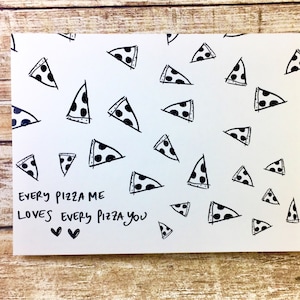 EVERY PIZZA ME
LOVES EVERY PIZZA YOU